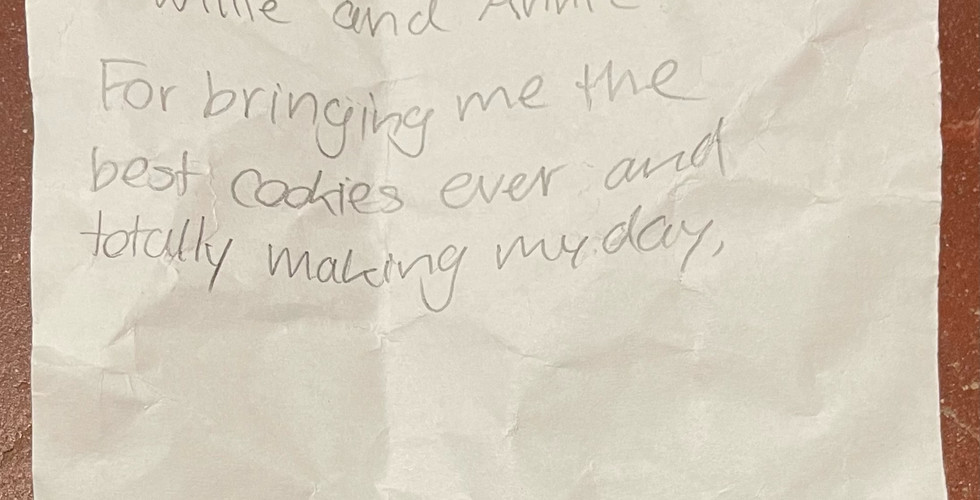 Willie and Annie
For bringing me the
best cookies ever and
totally making my day,